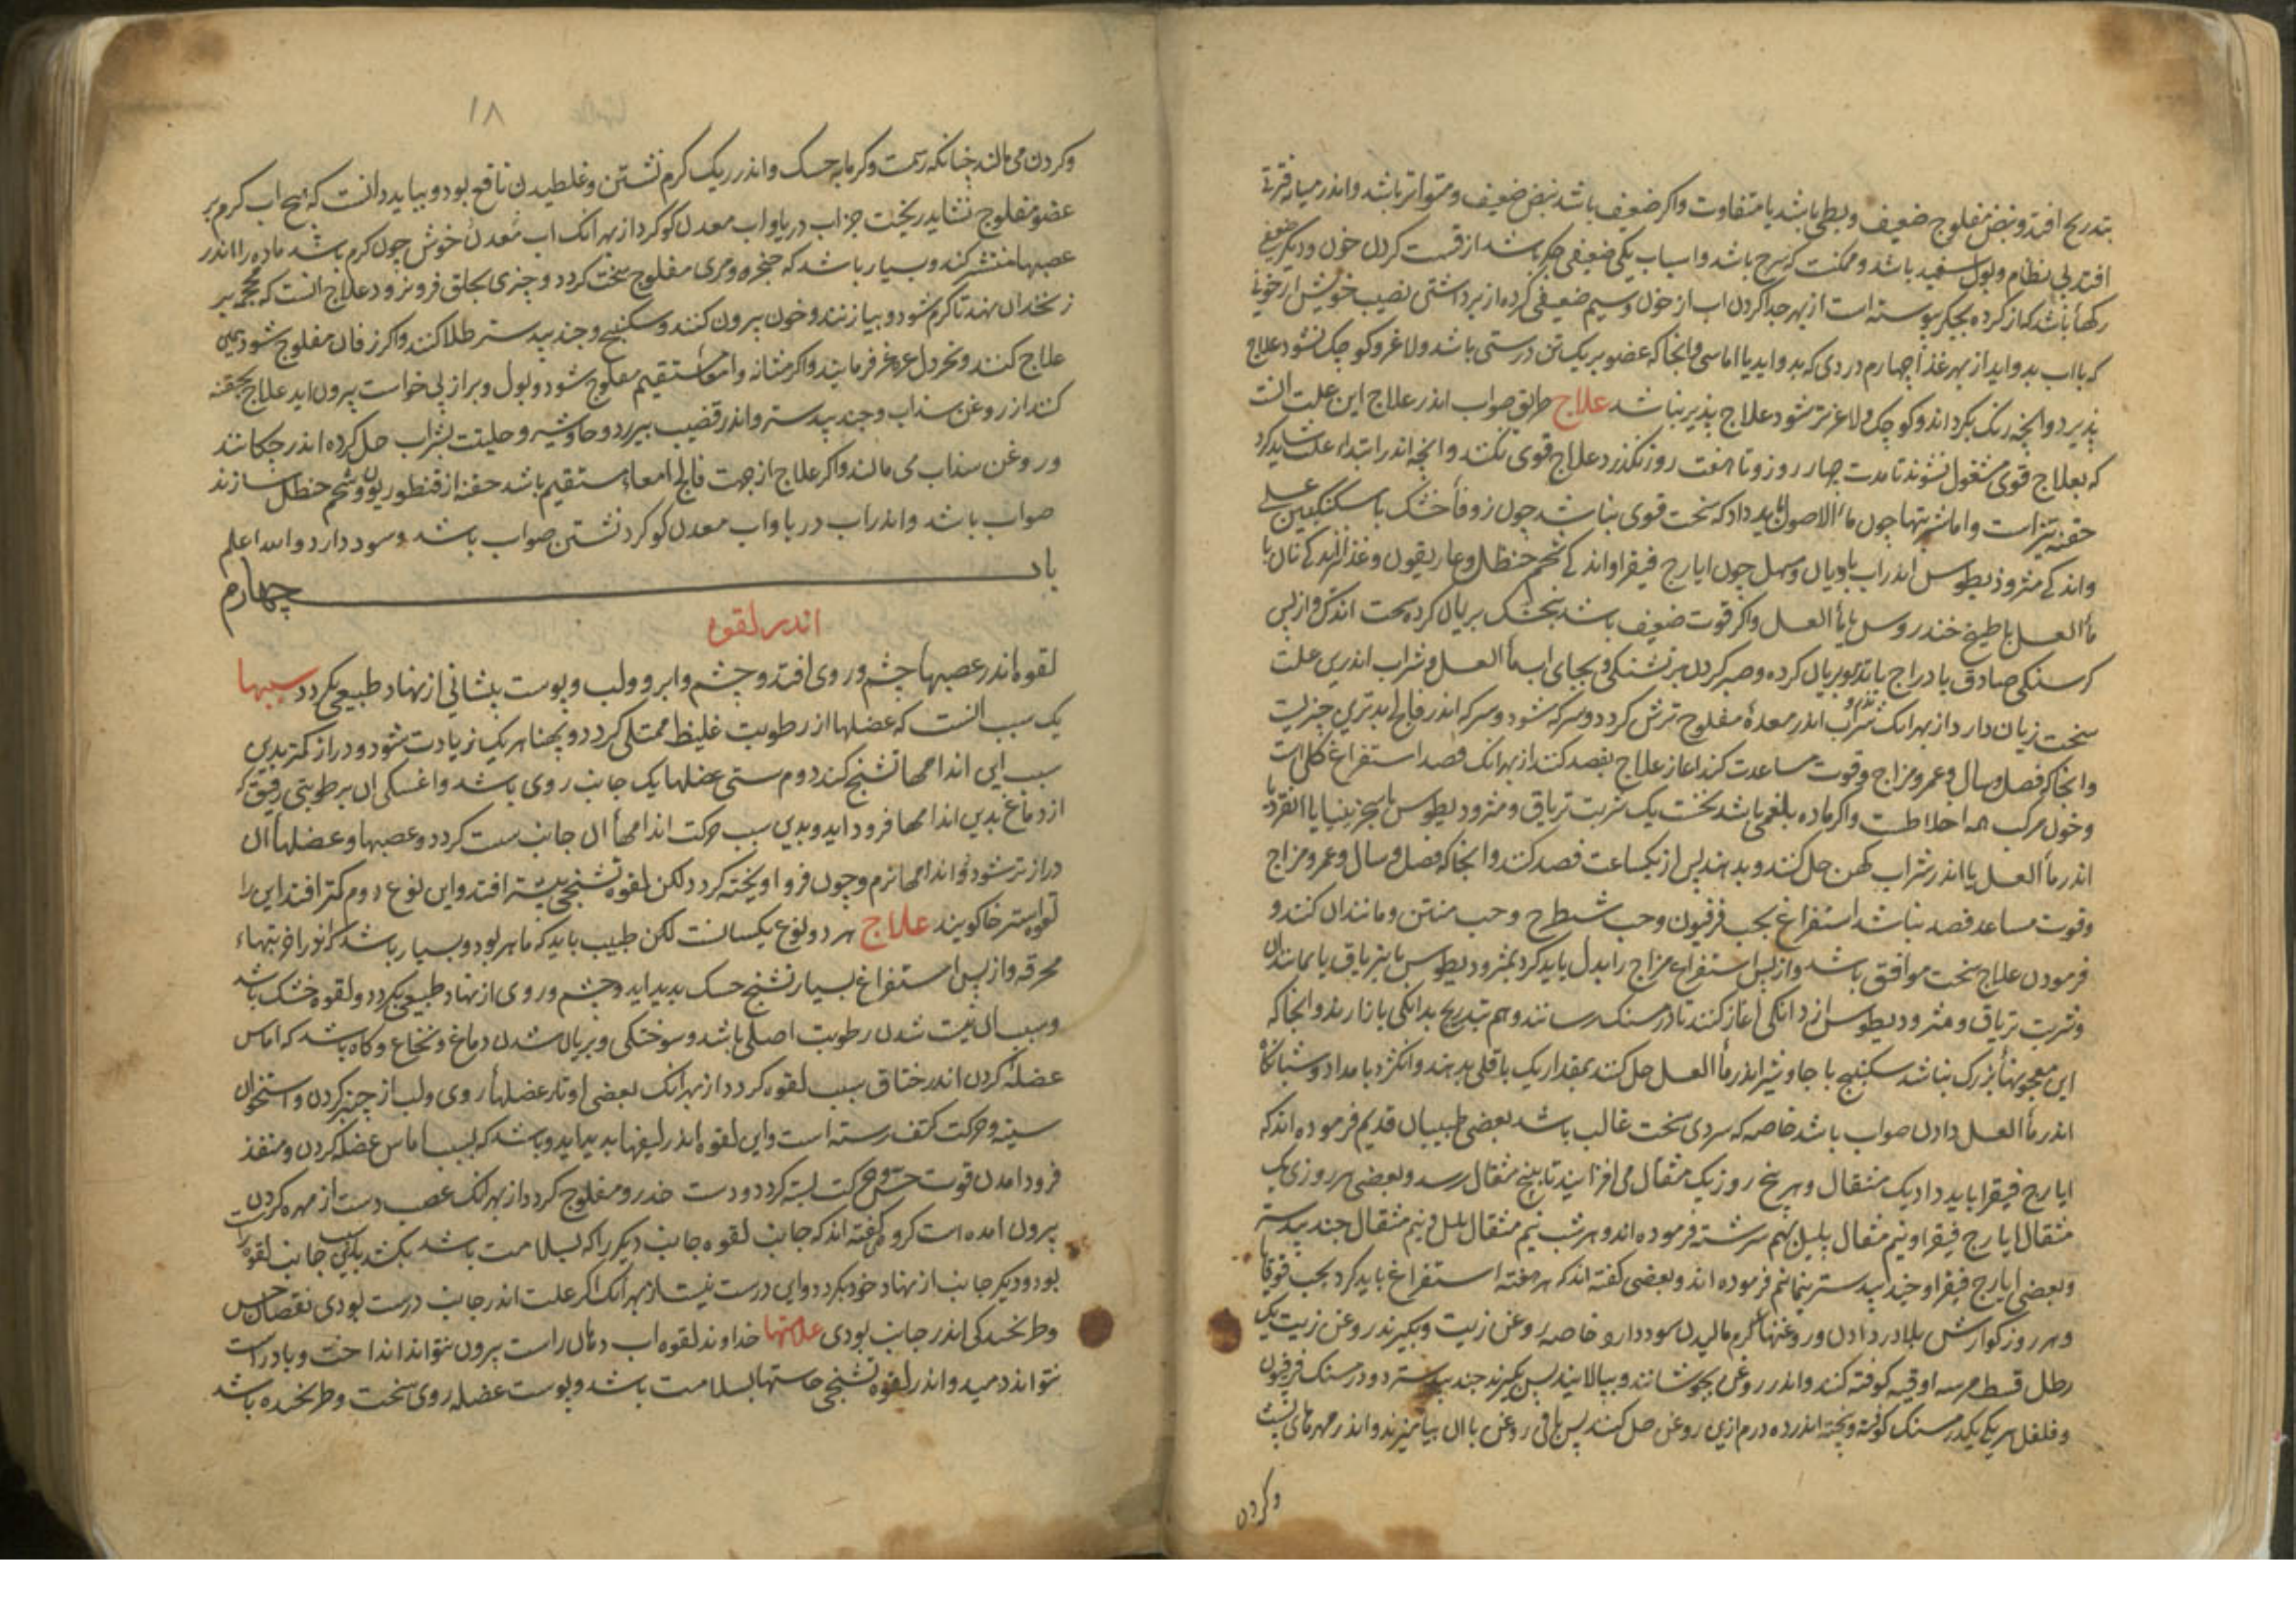 بتدریح افتد و نبض مفلوج ضعیف و بطی باشد یا متفاوت واکر ضعیف باشد نبض ضعیف و متواتر باشد و اندر میانه فترتی
افتد بی نظام و بول سفید باشد و ممکنست که سرح باشد و اسباب یکی ضعیفی جکر باشد از قسمت کردن خون و دیکر ضعیفی
رکهأ باشد که از کرده بجکر پیوسته است از بهر جدا کردن اب از خون وسیم ضعیفی کرده از برداشتن نصیب خویش از خونی
که با اب بدو اید از بهر غذا چهارم دردی که بدو اید یا اماسی و انجا که عضو بریک تن درستی باشد و لاغر و کوچک نشود علاج
پذیرد و انچه رنک بکرداند و کوچک و لاغرتر شود علاج پذیر نباشد علاج طریق صواب اندر علاج این علت انست
که بعلاج قوی مشغول نشوند تا مدت چهار روز و تا هفت روز نکذرد علاج قوی نکنند و انچه اندر ابتداء علت شاید کرد
حقنه تیز است و اما شربتها چون ماء الاصول باید داد که سخت قوی نباشد چون زوفأ خشک با سکنکبین عسلی
و اندکی مثرودیطوس اندر اب بادیان و مسهل چون ایارج فیقرا و اندکی شحم حنظل و غاریقون و غذا اندکی نان با
مأ العسل یا طبیخ خندروس با مأ العسل واکر قوت ضعیف باشد بنجشک بریان کرده سخت اندک و از پس
کرسنکی صادق یا دراج یا تذرو بریان کرده و صبر کردن بر تشنکی و بجای اب مأ العسل و شراب اندرین علت
سخت زیان دارد از بهر انک شراب اندر معدهٔ مفلوج ترش کردد و سرکه شود و سرکه اندر فالج بدترین چیزیست
تذرو
و انجا که فصل و سال و عمر و مزاج و قوت مساعدت کند اغاز علاج بفصد کنند از بهر انک فصد استفراغ کلی است
و خون مرکب همه اخلاطست واکر ماده بلغمی باشد نخست یک شربت تریاق و مثرودیطوس یا سجزینیا یا انقردیا
اندر مأ العسل یا اندر شراب کهن حل کنند و بدهند پس از یکساعت فصد کنند و انجا که فصل و سال و عمر و مزاج
و قوت مساعد فصد نباشد استفراغ بحب فرفیون و حب شیطرح و حب منتن و مانند ان کنند و
فرمودن علاج سخت موافق باشد و از پس استفراغ مزاج را بدل باید کرد بمثرودیطوس یا بتریاق یا بمانند ان
و شربت تریاق و مثرودیطوس از دانکی اغاز کنند تا درمسنک رسانند و هم بتدریح بدانکی باز ارند و انجا که
این معجونهأ بزرک نباشد سکبنیج با جاوشیر اندر مأ العسل حل کنند بمقدار یک باقلی بدهند و انکژد بامداد و شبانکاه
اندر مأ العسل دادن صواب باشد خاصه که سردی سخت غالب باشد بعضی طبیبان قدیم فرموده اند که
ایارج فیقرا باید داد یک مثقال و هر پنج روز یک مثقال می افزایند تا پنج مثقال رسد و بعضی هر روزی یک
مثقال ایارج فیقرا و نیم مثقال پلپل بهم سرشته فرموده اند و هر شب نیم مثقال پلپل و نیم مثقال جند بیدستر
و بعضی ایارج فیقرا و جند بیدستر نیمانیم فرموده اند و بعضی کفته اند که هر هفته استفراغ باید کرد بحب قوقایا
و هر روز کوارش بلادر دادن و روغنهأ کرم مالیدن سود دارد خاصه روغن زیت و بکیرند روغن زیت یک
رطل قسط مر سه اوقیه کوفته کنند و اندر روغن بجوشانند و بپالایند پس بکیرند جند بیدستر دو درمسنک فرفیون
و فلفل هر یکی یکدرمسنک کوفته و پخته اندر ده درم ازین روغن حل کنند پس باقی روغن با ان بیامیزند و اندر مهرهای پشت
وکردن
۱۸
وکردن می مالند چنانکه رسمت وکرمابه خسک و اندر ریک کرم نشستن و غلطیدن نافع بود و بباید دانست که هیچ اب کرم بر
عضو مفلوج نشاید ریخت جز اب دریا و اب معدن کوکرد از بهر انک اب معدن خوش چون کرم باشد ماده را اندر
عصبها منتشر کند و بسیار باشد که حنجره و مری مفلوج سخت کردد و چیزی بحلق فرو نرود علاج انست که محجمه بر
زنخدان نهند تا کرم شود و بیازنند و خون بیرون کنند و سکبنیج و جند بیدستر طلا کنند واکر زفان مفلوج شود همین
علاج کنند و بخردل غرغره فرمایند واکر مثانه و امعا مستقیم مفلوج شود و بول و براز بی خواست بیرون اید علاج بحقنه
کنند از روغن سداب و جند بیدستر و اندر قضیب بیرزد و جاوشیر و حلتیت بشراب حل کرده اندر چکانند
و روغن سداب می مالند واکر علاج از جهت فالج امعاء مستقیم باشد حقنه از قنطوریون و شحم حنظل سازند
صواب باشد و اندر اب دریا و اب معدن کوکرد نشستن صواب باشد و سود دارد والله اعلم
باب چهارم
اندر لقوه
لقوه اندر عصبها چشم و روی افتد و چشم و ابرو و لب و پوست پیشانی از نهاد طبیعی بکردد سببها
یک سبب انست که عضلها از رطوبت غلیظ ممتلی کردد و پهنا هر یک زیادت شود و دراز کمتر بدین
سبب این اندامها تشنج کند دوم سستی عضلها یک جانب روی باشد و اغسکی ان برطوبتی رقیق که
از دماغ بدین اندامها فرود اید و بدین سبب حرکت اندامهأ ان جانب سست کردد و عصبها و عضلهأ ان
درازتر شود و اندامها نرم و چون فرو اویخته کردد لکن لقوه تشنجی بیشتر افتد و این نوع دوم کمتر افتد این را
لقوه استرخا کویند علاج هر دو نوع یکسانست لکن طبیب باید که ماهر بود و بسیار باشد که اندر اخر تبهاء
محرقه و از پس استفراغ بسیار تشنج خسک پدید اید و چشم و روی از نهاد طبیعی بکردد و لقوه خشک باشد
و سبب ان نیست شدن رطوبت اصلی باشد و سوختکی و بریان شدن دماغ و نخاع و کاه باشد که اماس
عضلهٔ کردن اندر خناق سبب لقوه کردد از بهر انک بعضی اوتار عضلهأ روی و لب از چنبر کردن و استخوان
سینه و حرکت کتف رسته است و این لقوه اندر لیفها پدید اید و باشد که بسبب اماس عضله کردن و منفذ
فرود امدن قوت حس و حرکت بسته کردد و دست خدر و مفلوج کردد از بهر انک عصب دست از مهره کردن
بیرون امده است کروهی کفته اند که جانب لقوه جانب دیکر را که بسلامت باشد بکشد جانب لقوه راست
بود و دیکر جانب از نهاد خود بکردد و این درست نیست از بهر انک اکر علت اندر جانب درست بودی نقصان حس
و طرنجیدکی اندر جانب بودی علامتها خداوند لقوه اب دهان راست بیرون نتواند انداخت و باد راست
نتواند دمید و اندر لقوه تشنجی حاستها بسلامت باشد و پوست عضله روی سخت و طرنجیده باشد